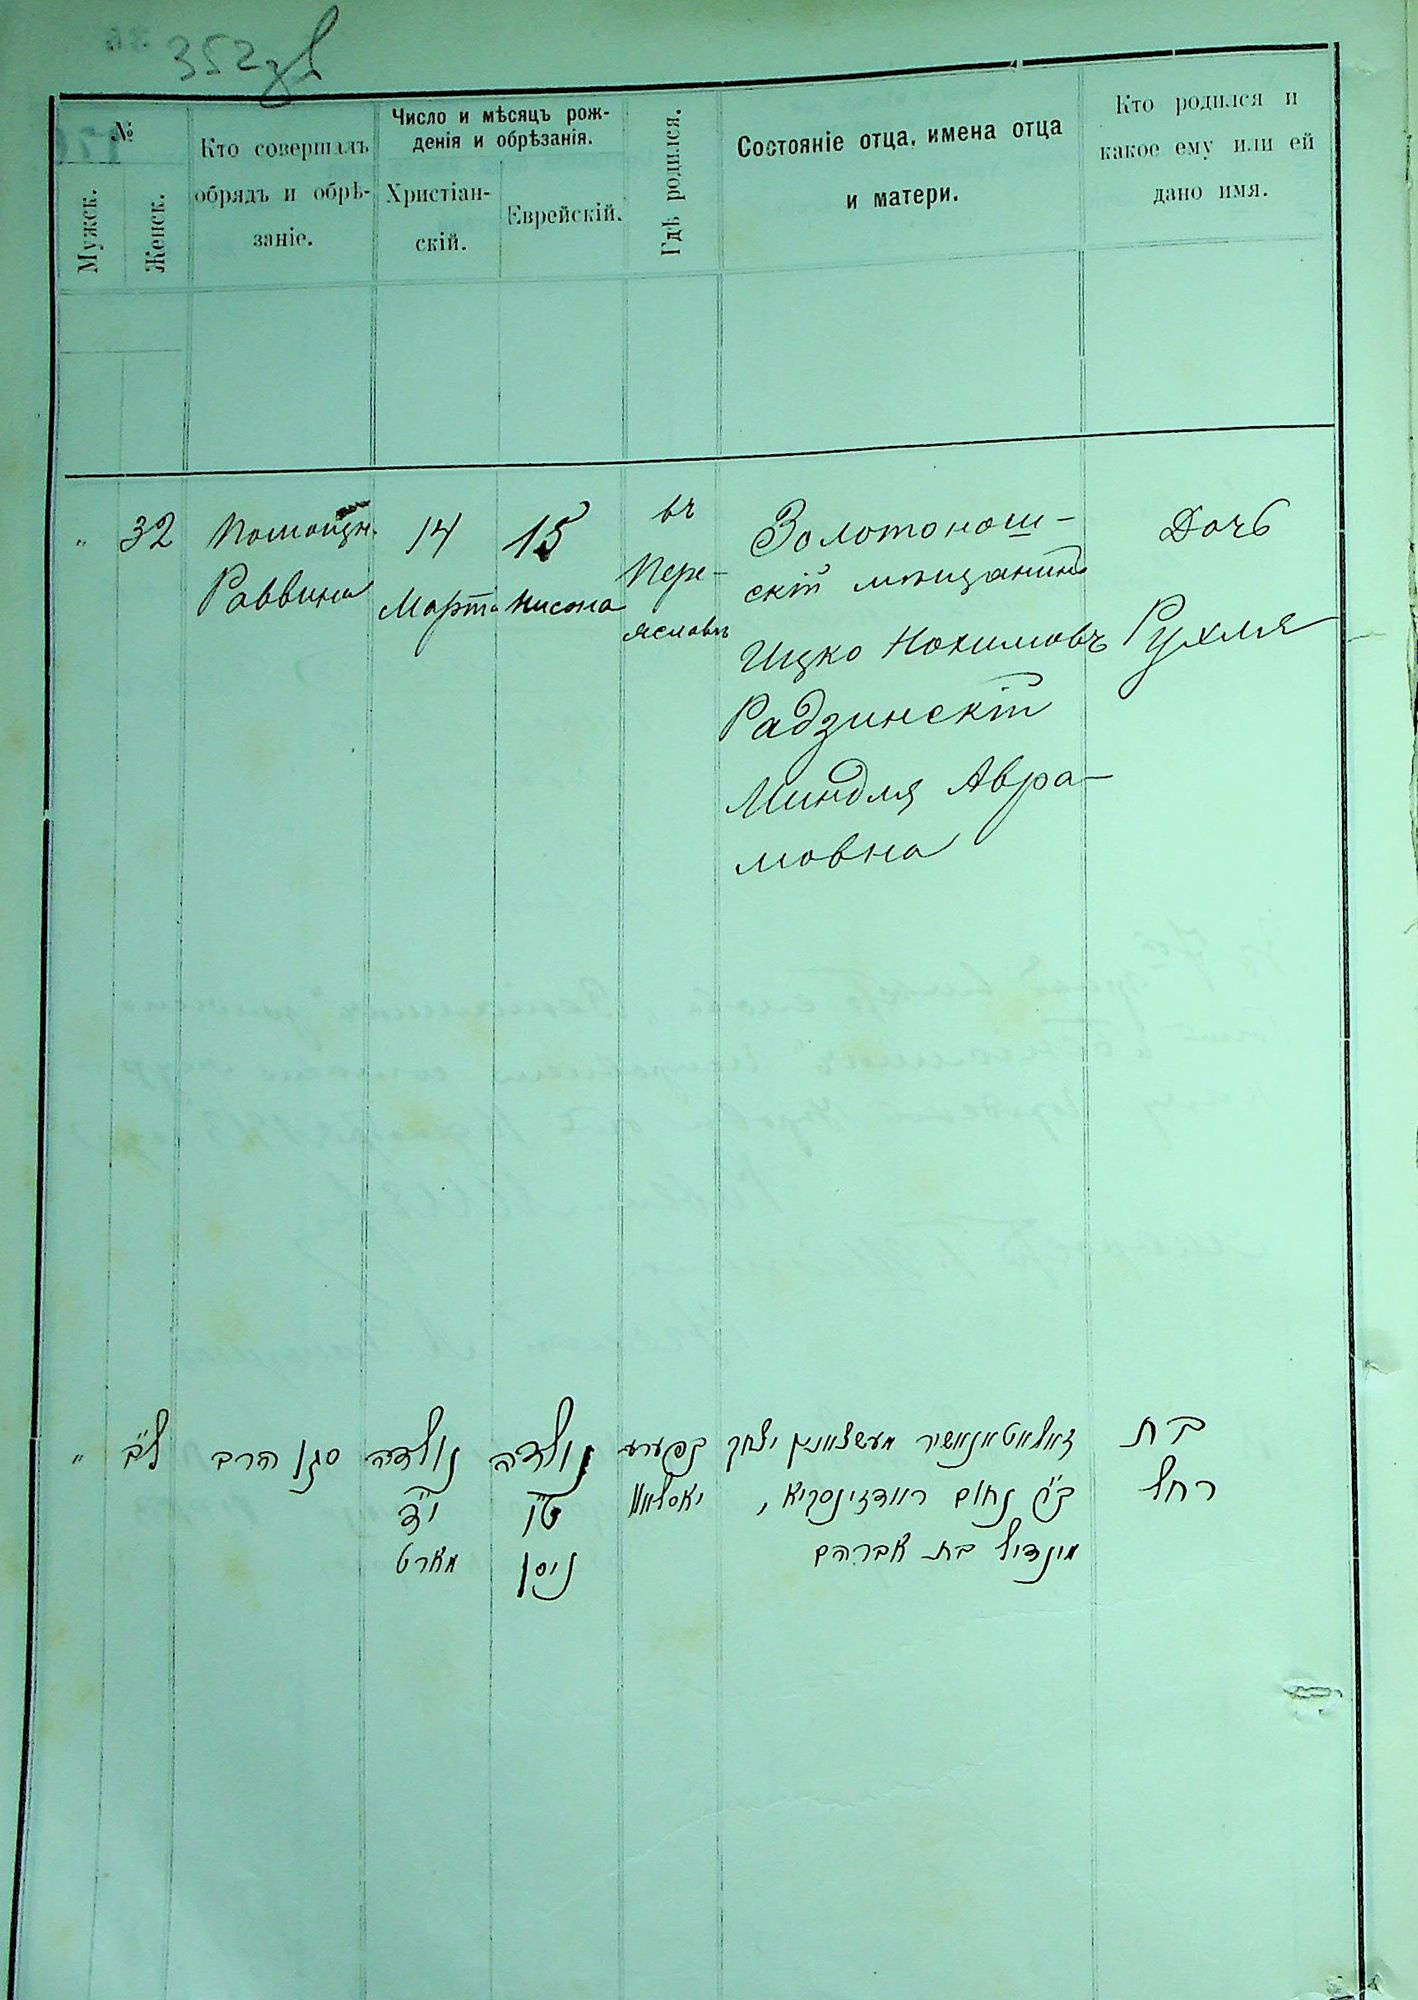 352 об
№
Мужск.
Женск.
Кто совершалъ
обрядъ и обрѣ-
заніе.
Число и мѣсяцъ рож-
денія и обрѣзанія.
Христіан-
скій.
Еврейскій.
Гдѣ родился.
Состояніе отца, имена отца
и матери.
Кто родился и
какое ему или ей
дано имя.
"
32
Помощн.
Раввина
14
Марта
15
Нисона
въ
Пере-
яславѣ
Золотонош-
скій мѣщанинъ
Ицко Нохимовъ
Радзинскій
Миндля Авра-
мовна
Дочь
Рухля
"
ל"ב
סגן הרב
נולדה
י"ד
מארט
נולדה
ט"ו
ניסן
בפערע
יאסלאוו
זאלאטאנאשיר מעשצאנין יצחק
ב"ר נחום ראדזינסקיא,
מינדיל בת אברהם
בת
רחל